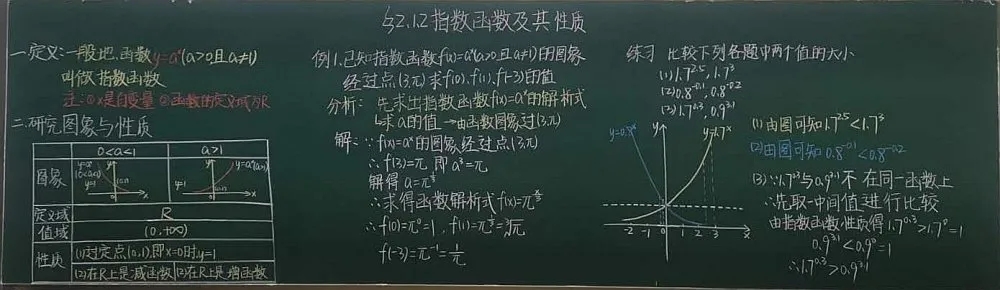 §2.1.2指数函数及其性质
一定义:一般地.函数y=aˣ(a>0且a≠1)
叫做指数函数
注:①x是自变量 ②函数的定义域为R
二.研究图象与性质
0<a<1 a>1
图象
y=aˣ
(0<a<1)
y
y=1
(0,1)
x
y
y=aˣ(a>1)
y=1
(0,1)
x
定义域 R
值域 (0,+∞)
性质 (1)过定点(0,1),即x=0时,y=1
(2)在R上是减函数 (2)在R上是增函数
例1.已知指数函数f(x)=aˣ(a>0且a≠1)的图象
经过点(3,π)求f(0),f(1),f(-3)的值
分析: 先求出指数函数f(x)=aˣ的解析式
↳求a的值→由函数图象过(3,π)
解:∵f(x)=aˣ的图象经过点(3,π)
∴f(3)=π,即a³=π
解得a=π^⅓
∴求得函数解析式f(x)=π^(x/3)
∴f(0)=π⁰=1, f(1)=π^⅓=³√π
f(-3)=π⁻¹=1/π
练习 比较下列各题中两个值的大小
(1)1.7^2.5, 1.7³
(2)0.8^-0.1, 0.8^-0.2
(3)1.7^0.3, 0.9^3.1
y=0.8ˣ y y=1.7ˣ
-2 -1 0 1 2 3 x
(1)由图可知1.7^2.5<1.7³
(2)由图可知0.8^-0.1<0.8^-0.2
(3)∵1.7^0.3与0.9^3.1不在同一函数上
∴先取中间值进行比较
由指数函数性质得1.7^0.3>1.7⁰=1
0.9^3.1<0.9⁰=1
∴1.7^0.3>0.9^3.1